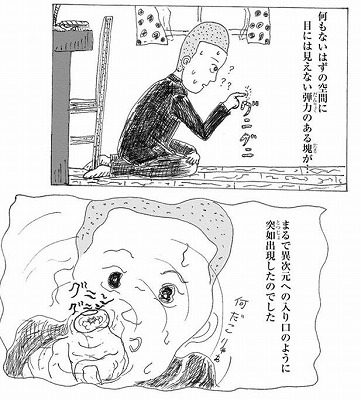 何もないはずの空間に
目には見えない弾力のある塊が
???
グニグニ
まるで異次元への入り口のように
突如出現したのでした
グニーン
何だこりゃぁ